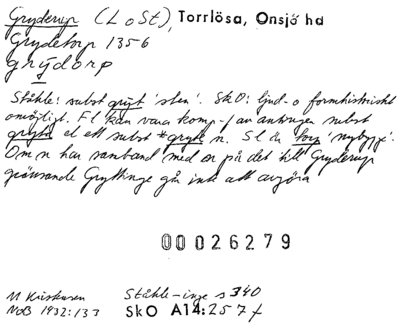 Gryderup (L o St), Torrlösa, Onsjö hd
Grydetorp 1356
grýdorp
Ståhle: subst gryt 'sten'. SkO: ljud- o formhistoriskt
omöjligt. Fl kan vara komp. av antingen subst
gryta el ett subst *gryte n. Sl är torp 'nybygge'.
Om n har samband med on på det till Gryderup
gränsande Gryttinge går inte att avgöra
00026279
M Kristensen Ståhle-inge s 340
NoB 1932:133 SkO A14:257 f